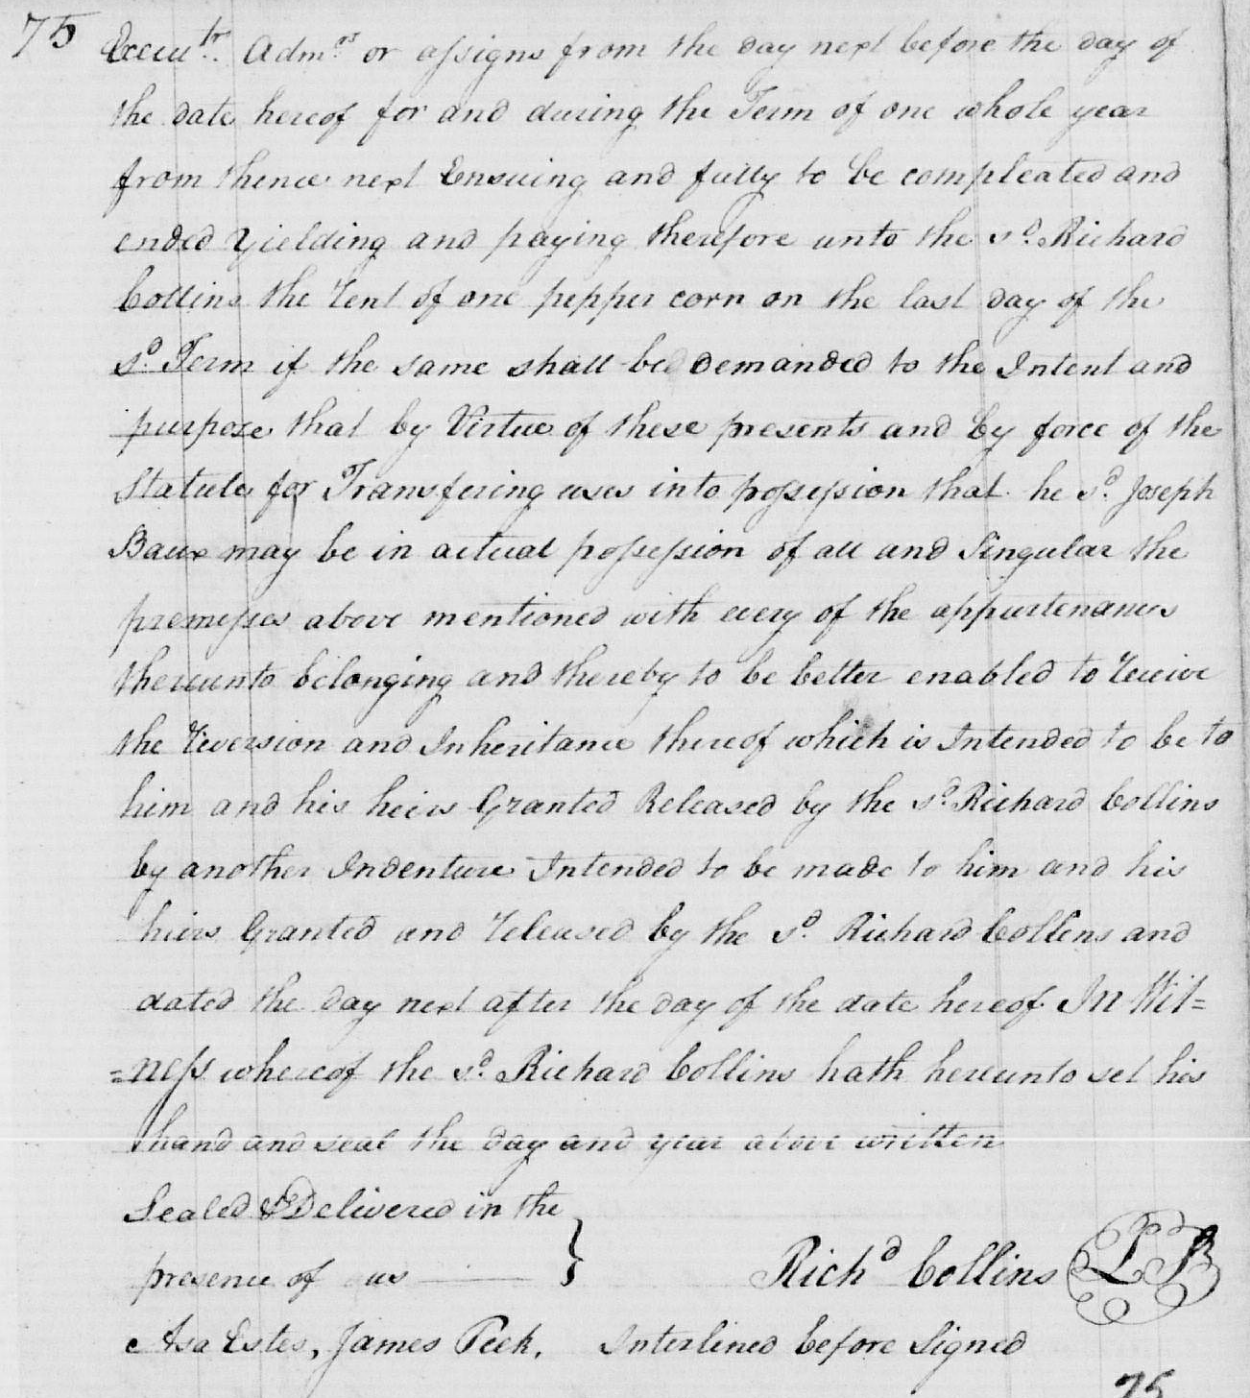 75 Execu.trs Adm.ors or assigns from the day next before the day of
the date hereof for and during the Term of one whole year
from thence next Ensuing and fully to be compleated and
ended Yielding and paying therefore unto the s.d Richard
Collins the rent of one pepper corn on the last day of the
s.d Term if the same shall be demanded to the Intent and
purpose that by Virtue of these presents and by force of the
Statute for Transfering uses into possession that he s.d Joseph
Baux may be in actual possession of all and Singular the
premisses above mentioned with every of the appurtenances
thereunto belonging and thereby to be better enabled to receive
the reversion and Inheritance thereof which is Intended to be to
him and his heirs Granted Released by the s.d Richard Collins
by another Indenture Intended to be made to him and his
heirs Granted and released by the s.d Richard Collens and
dated the day next after the day of the date hereof In Wit=
=ness whereof the s.d Richard Collins hath hereunto set his
hand and seal the day and year above written
Sealed & Delivered in the
presence of us } Rich.d Collins L S
Asa Estes, James Peek. Interlined before Signed
75